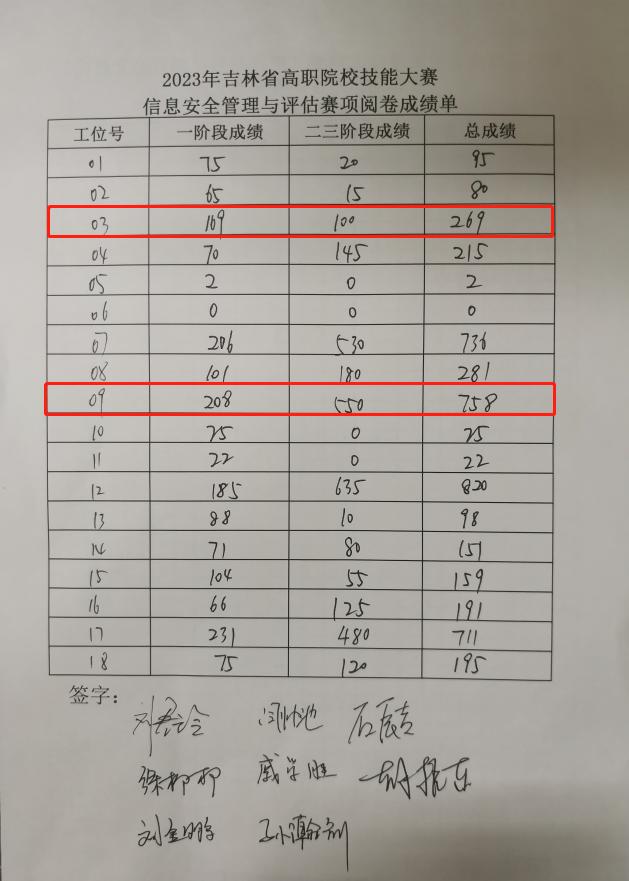 2023年吉林省高职院校技能大赛
信息安全管理与评估赛项阅卷成绩单
工位号 一阶段成绩 二三阶段成绩 总成绩
01 75 20 95
02 65 15 80
03 169 100 269
04 70 145 215
05 2 0 2
06 0 0 0
07 206 530 736
08 101 180 281
09 208 550 758
10 25 0 25
11 22 0 22
12 185 635 820
13 88 10 98
14 71 80 151
15 104 55 159
16 66 125 191
17 231 480 711
18 75 120 195
签字：
石辰吉
徐柳柳 戚学胜
刘金鹏